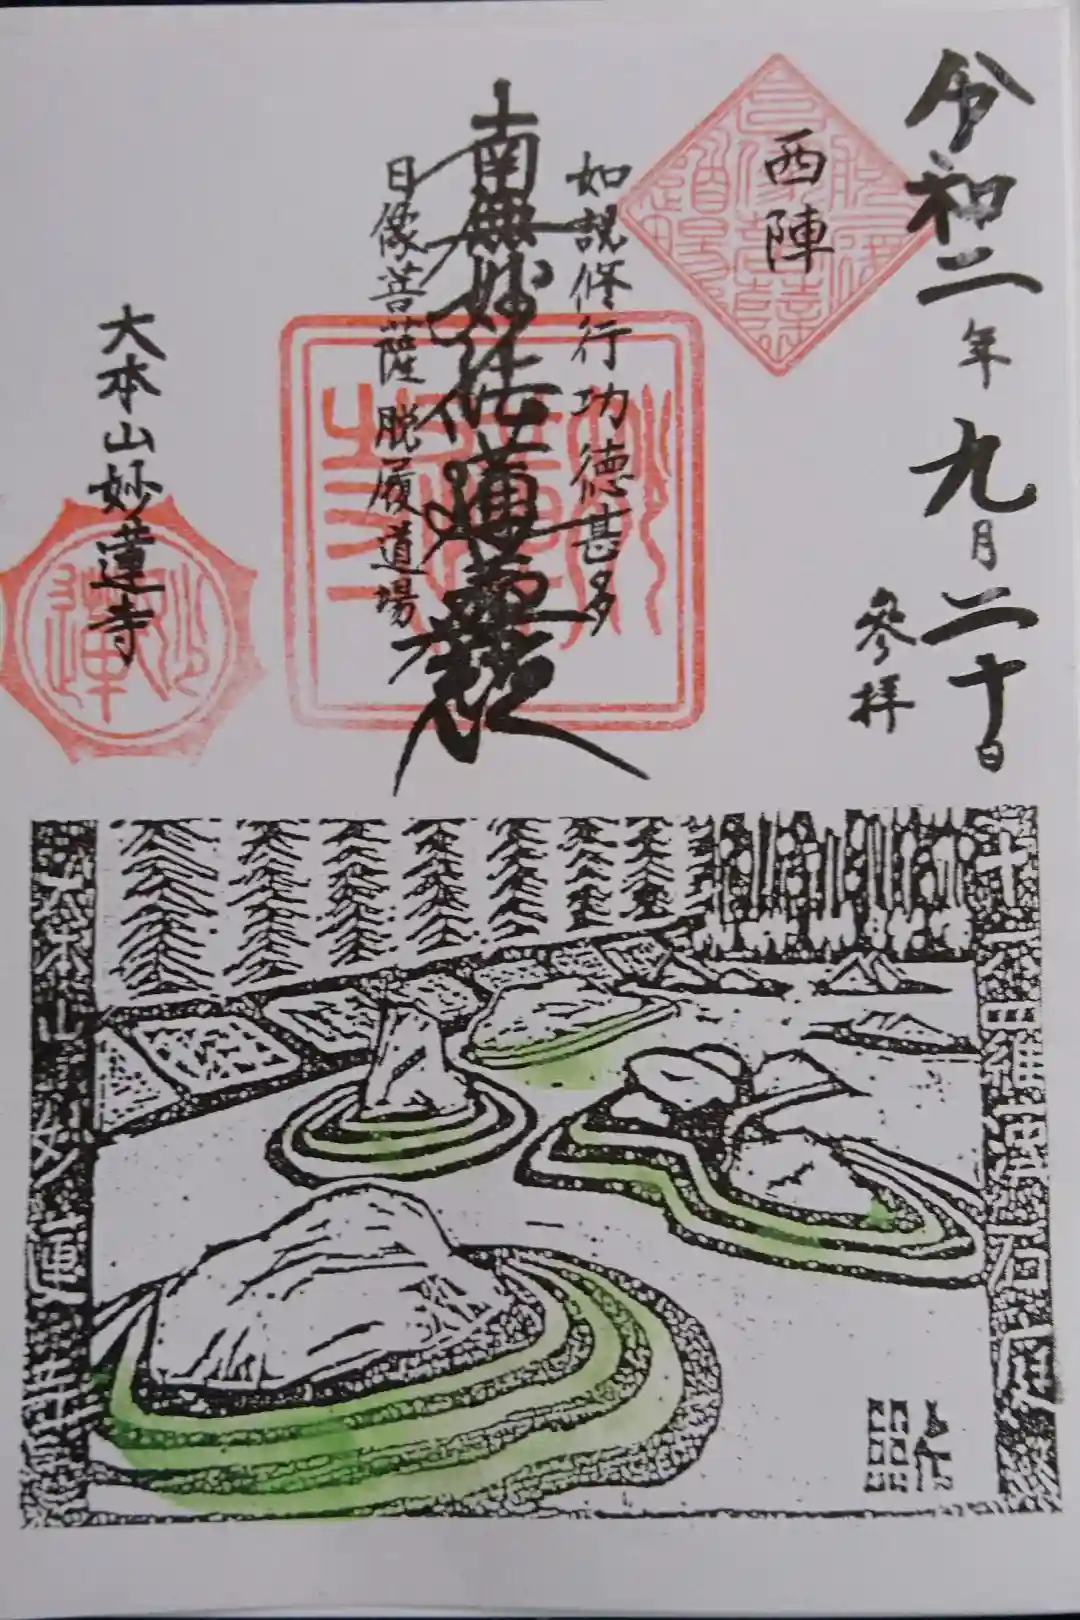 令和二年九月二十日
参拝
西陣
如説修行功徳甚多
南無妙法蓮華経
日像菩薩 脱履道場
大本山妙蓮寺
妙蓮
十六羅漢石庭
大本山妙蓮寺